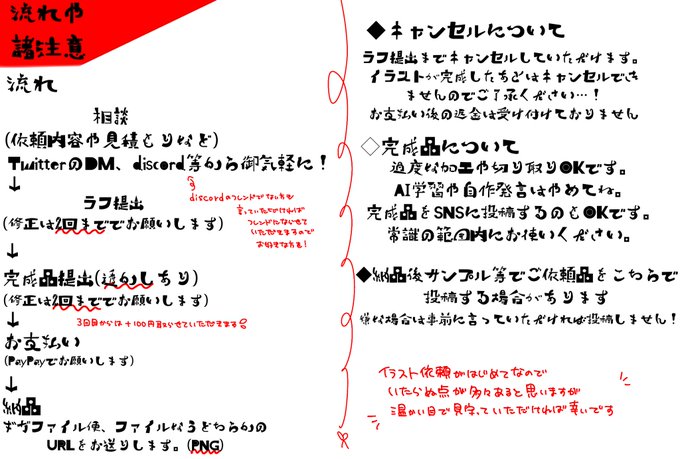 流れや
諸注意
流れ
相談
(依頼内容や見積もりなど)
TwitterのDM、discord等から御気軽に！
↓
discordのフレンドでない方も
言っていただければ
フレンドにならせて
いただきますので
お好きな方を！
ラフ提出
(修正は2回まででお願いします)
↓
完成品提出(透かしあり)
(修正は2回まででお願いします)
↓
3回目からは+100円取らせていただきます
お支払い
(PayPayでお願いします)
↓
納品
ギガファイル便、ファイルなうどちらかの
URLをお送りします。(PNG)
◆キャンセルについて
ラフ提出までキャンセルしていただけます。
イラストが完成したあとはキャンセルでき
ませんのでご了承ください…！
お支払い後の返金は受け付けておりません
◇完成品について
過度な加工や切り取りOKです。
AI学習や自作発言はやめてね。
完成品をSNSに投稿するのもOKです。
常識の範囲内にお使いください。
◆納品後サンプル等でご依頼品をこちらで
投稿する場合があります
嫌な場合は事前に言っていただければ投稿しません！
イラスト依頼がはじめてなので
いたらぬ点が多々あると思いますが
温かい目で見守っていただければ幸いです